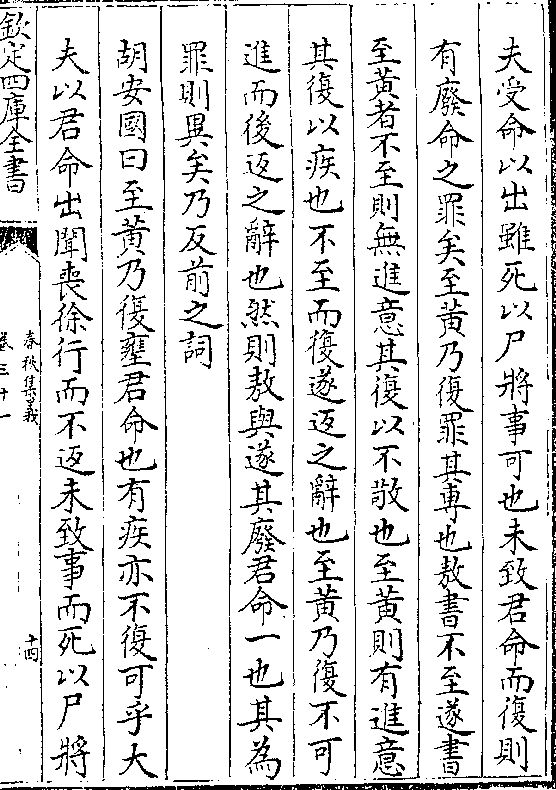 夫受命以出雖死以尸將事可也未致君命而復則
有廢命之罪矣至黃乃復罪其專也敖書不至遂書
至黃者不至則無進意其復以不敬也至黃則有進意
其復以疾也不至而復遂返之辭也至黃乃復不可
進而後返之辭也然則敖與遂其廢君命一也其為
罪則異矣乃反前之詞
胡安國曰至黃乃復壅君命也有疾亦不復可乎大
夫以君命出聞喪徐行而不返未致事而死以尸將
欽定四庫全書
春秋集義
卷三十一
十四